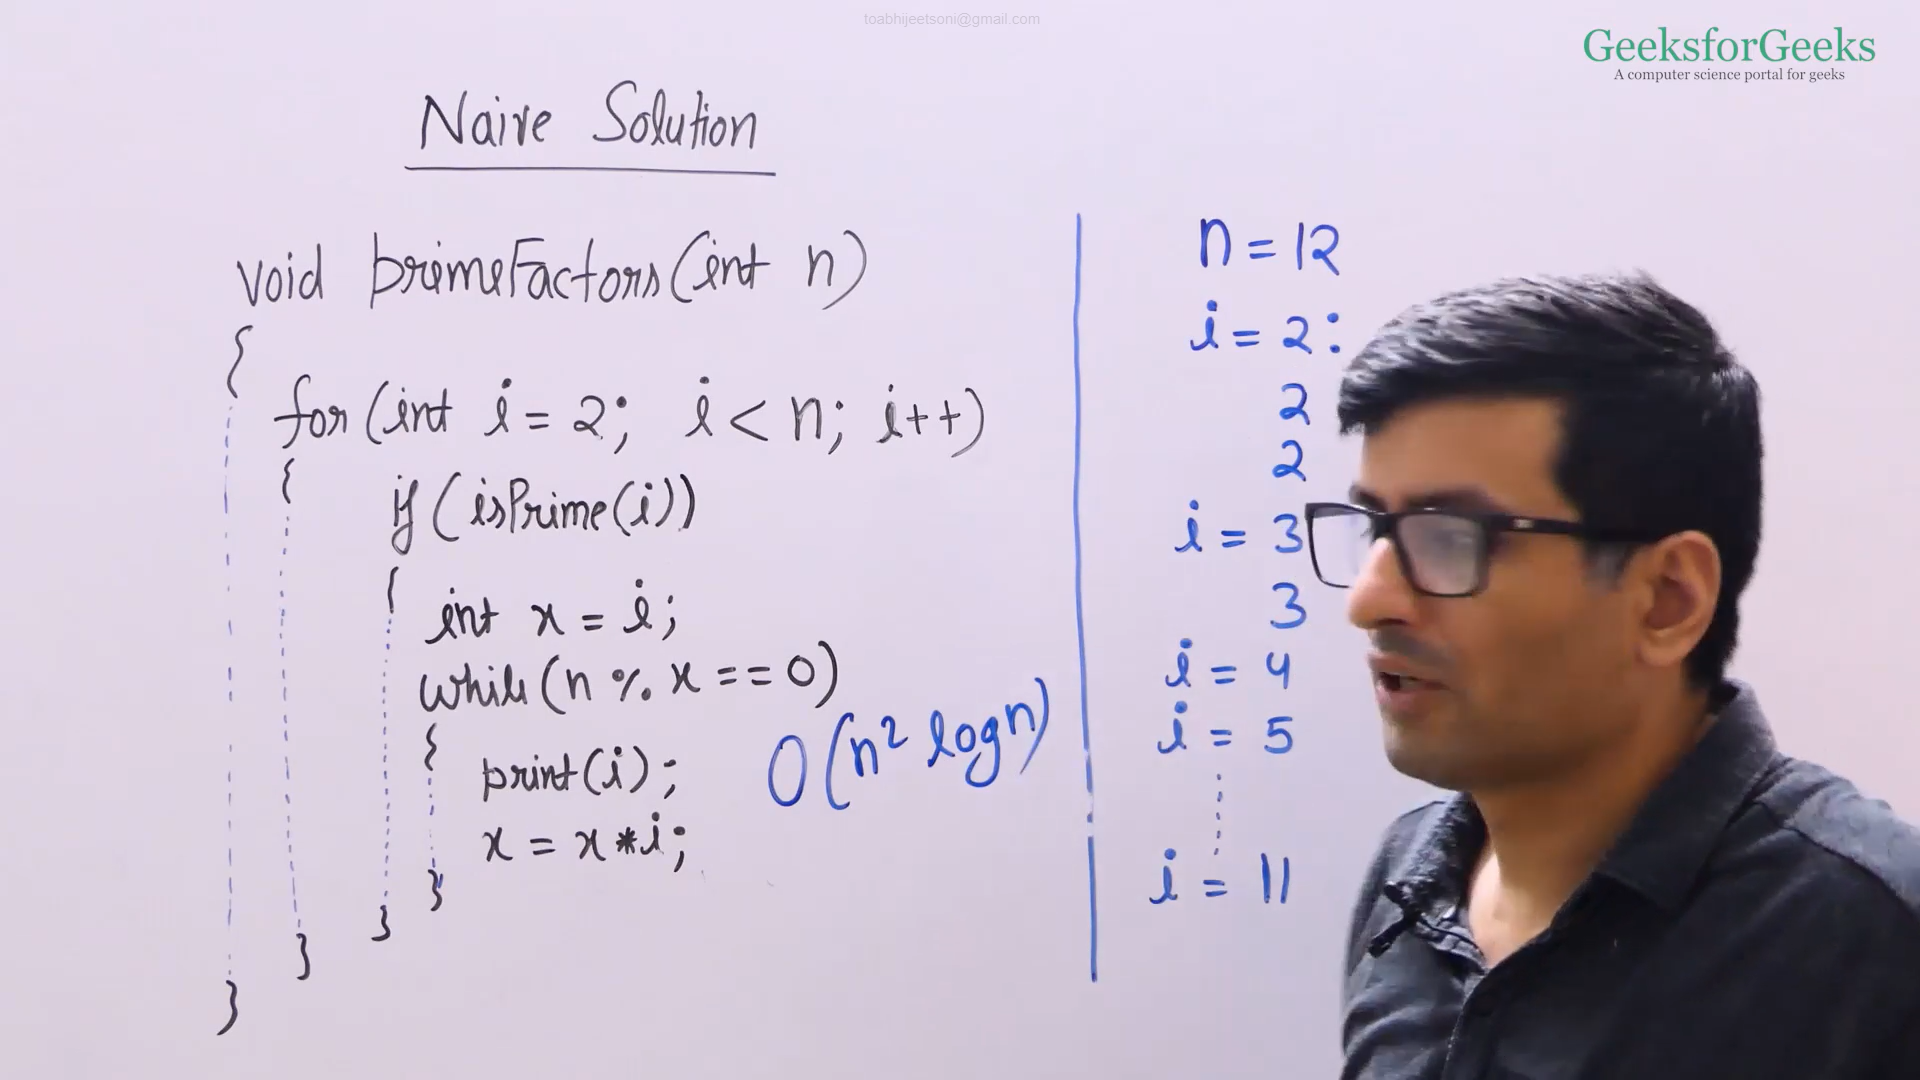 toabhijeetsoni@gmail.com
GeeksforGeeks
A computer science portal for geeks
Naive Solution
void primeFactors(int n)
{
for(int i = 2; i < n; i++)
{
if(isPrime(i))
{
int x = i;
while(n % x == 0)
{
print(i);
x = x * i;
}
}
}
}
O(n² log n)
n = 12
i = 2:
2
2
i = 3
3
i = 4
i = 5
i = 11